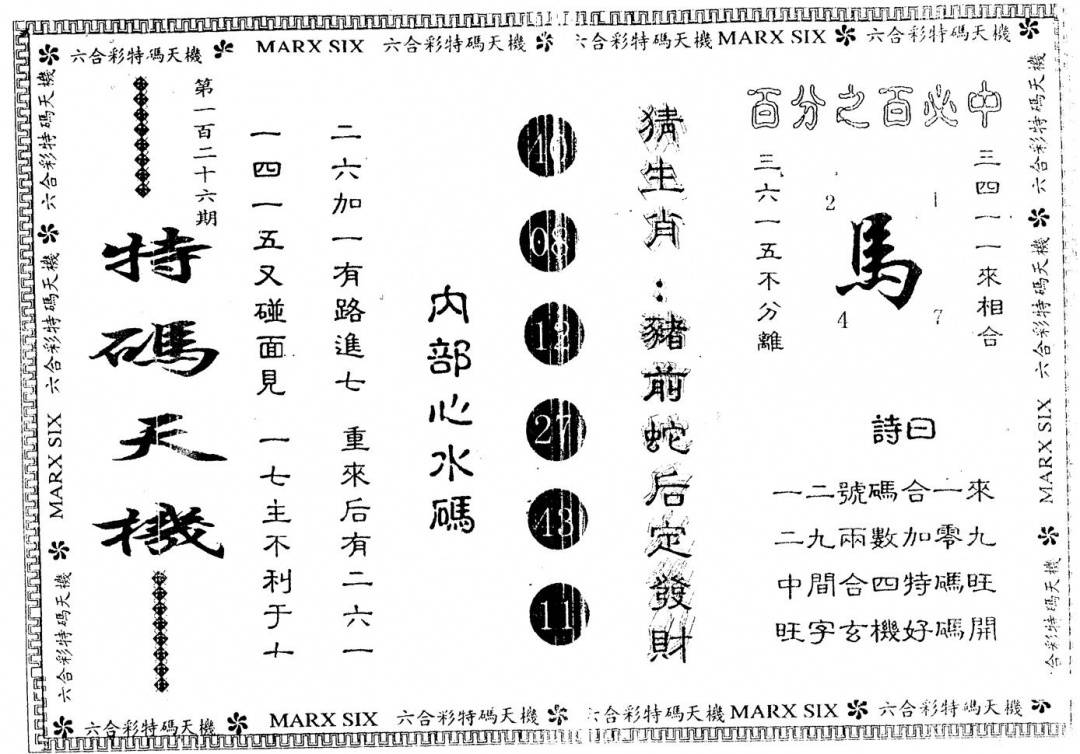 六合彩特碼天機 MARX SIX 六合彩特碼天機 六合彩特碼天機 MARX SIX 六合彩特碼天機
百分之百必中
三四一一來相合
馬
1
2
4
7
三六一五不分離
詩曰
一二號碼合一來
二九兩數加零九
中間合四特碼旺
旺字玄機好碼開
猜生肖：豬前蛇后定發財
40
08
12
27
43
11
內部心水碼
二六加一有路進七 重來后有二六一
一四一五又碰面見 一七主不利于十
第一百二十六期
特碼天機
六合彩特碼天機 六合彩特碼天機 MARX SIX 六合彩特碼天機
六合彩特碼天機 六合彩特碼天機 MARX SIX 合彩特碼天機
六合彩特碼天機 MARX SIX 六合彩特碼天機 六合彩特碼天機 MARX SIX 六合彩特碼天機